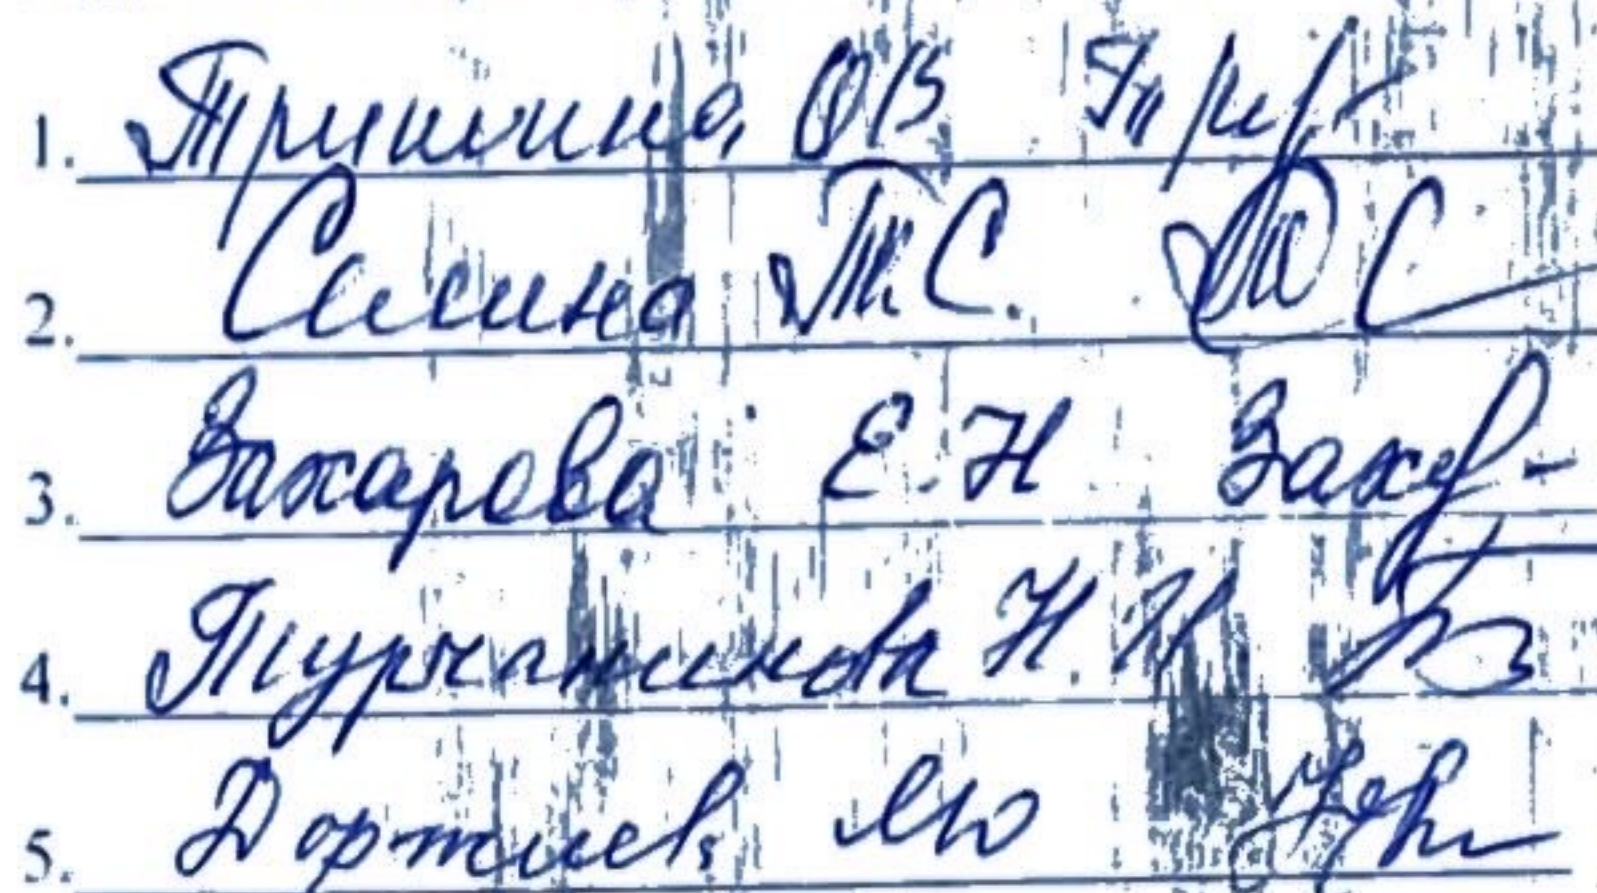 1. Тришина ОВ Три
2. Силина Т.С. ТС
3. Захарова Е.Н Захар
4. Турчанинова Н.И
5. Доржиев